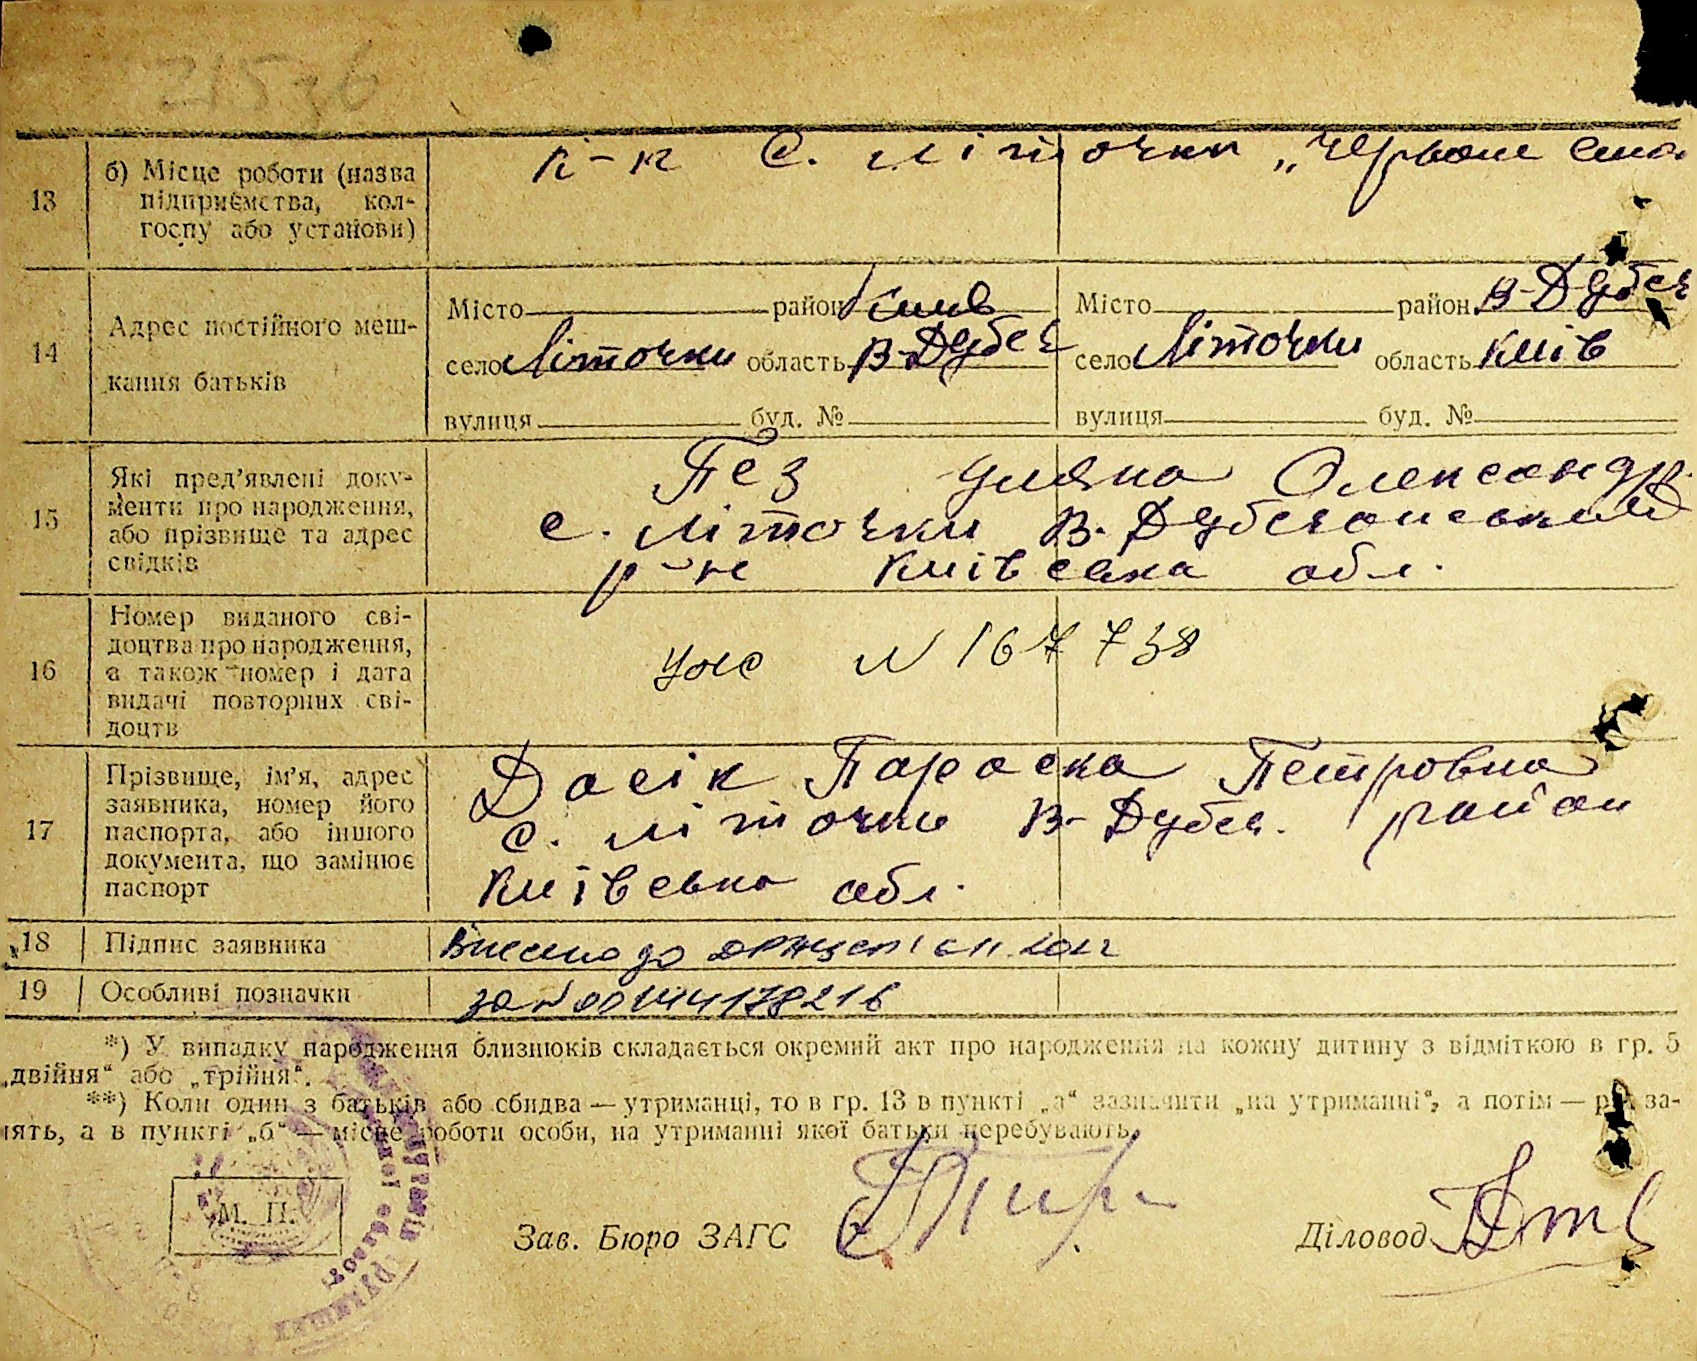 13 б) Місце роботи (назва підприємства, колгоспу або установи)
к-п с. Літочки „Червоне
14 Адрес постійного мешкання батьків
Місто район Київ Місто район В-Дубеч
село Літочки область В-Дубеч село Літочки область Київ
вулиця буд. № вулиця буд. №
15 Які пред’явлені документи про народження, або прізвище та адрес свідків
Гез Уляна Олександр.
с. Літочки В. Дубечанський
р-н Київська обл.
16 Номер виданого свідоцтва про народження, а також номер і дата видачі повторних свідоцтв
N 167738
17 Прізвище, ім’я, адрес заявника, номер його паспорта, або іншого документа, що замінює паспорт
Досік Параска Петровна
с. Літочки В-Дубеч. район
Київська обл.
18 Підпис заявника Внесено до ДРАЦСГ 2022
19 Особливі позначки за N 00144178216
*) У випадку народження близнюків складається окремий акт про народження на кожну дитину з відміткою в гр. 5
„двійня“ або „трійня“.
**) Коли один з батьків або обидва — утриманці, то в гр. 13 в пункті „а“ зазначити „на утриманні“, а потім — рід за-
нять, а в пункті „б“ — місце роботи особи, на утриманні якої батьки перебувають.
М. П.
Зав. Бюро ЗАГС Діловод